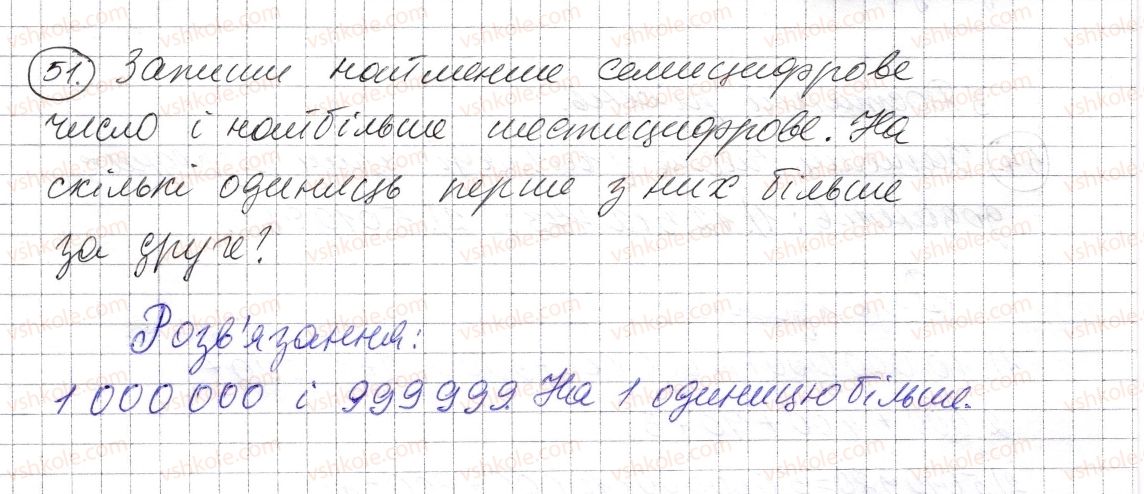 51. Запиши найменше семицифрове
число і найбільше шестицифрове. На
скількі одиниць перше з них більше
за друге?
Розв'язання:
1 000 000 і 999 999. На 1 одиницю більше.